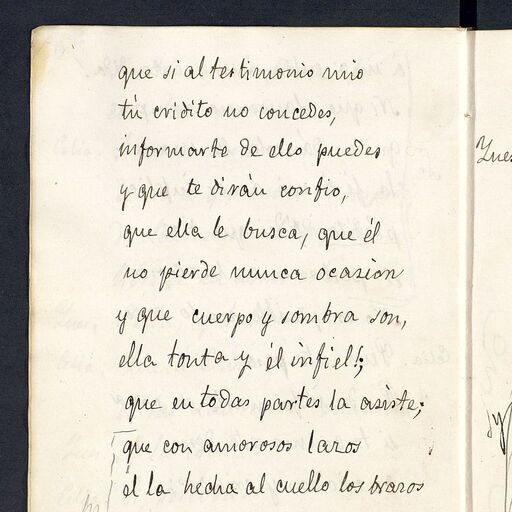 que si al testimonio mio
tú cridito no concedes,
informarte de ello puedes
y que te dirán confio,
que ella le busca, que él
no pierde nunca ocasion
y que cuerpo y sombra son,
ella tonta y él infiel!;
que en todas partes la asiste;
que con amorosos lazos
él la hecha al cuello los brazos